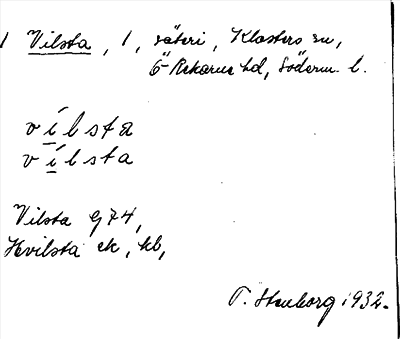 1 Vilsta, 1, säteri, Klosters sn,
Ö Rekarne hd, Söderm. l.
vílsta
vílsta
Vilsta G74,
Hvilsta ek, kb,
T. Stenborg 1932.